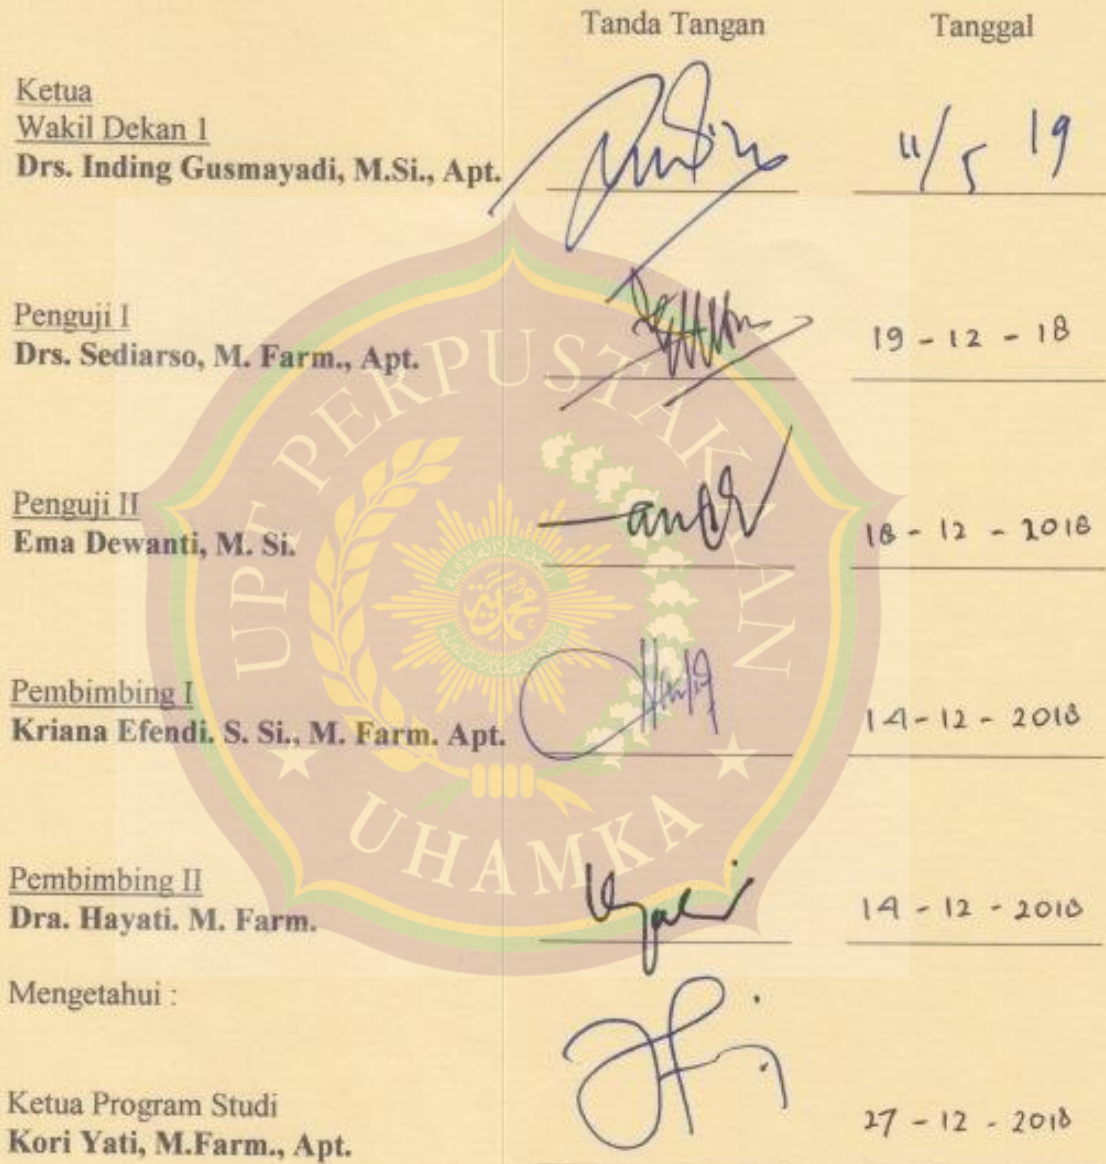 Tanda Tangan Tanggal
Ketua
Wakil Dekan 1
Drs. Inding Gusmayadi, M.Si., Apt. 11/5 19
Penguji I
Drs. Sediarso, M. Farm., Apt. 19 - 12 - 18
Penguji II
Ema Dewanti, M. Si. 18 - 12 - 2018
Pembimbing I
Kriana Efendi. S. Si., M. Farm. Apt. 14 - 12 - 2018
Pembimbing II
Dra. Hayati. M. Farm. 14 - 12 - 2018
Mengetahui :
Ketua Program Studi
Kori Yati, M.Farm., Apt. 27 - 12 - 2018
UPT PERPUSTAKAAN
UHAMKA